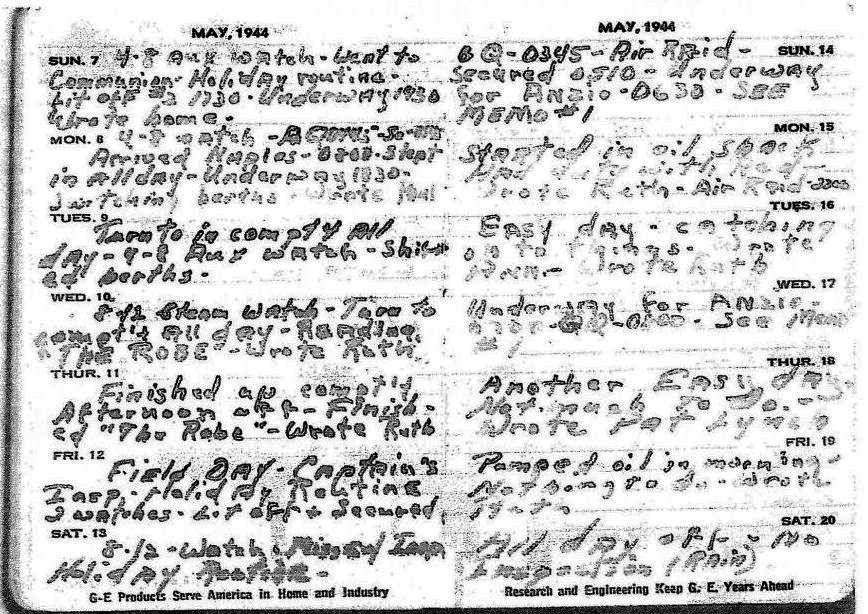 MAY, 1944
SUN. 7 4-8 Aux watch - Went to
Communion - Holiday routine -
Lit off #2 1730 - Underway 1930
Wrote home -
MON. 8 4-8 watch -
Arrived Naples - 0800 - Slept
in All day - Underway 1830 -
Switching berths - Wrote
TUES. 9
Turn to in compt'y All
day - 4-8 Aux watch - Shift
ed berths -
WED. 10
8-12 Steam watch - Turn to
compt't All day - Reading
"THE ROBE" - Wrote Ruth
THUR. 11
Finished up compt'y
Afternoon off - Finish-
ed "The Robe" - Wrote Ruth
FRI. 12
Field DAY - Captain's
Insp. - Holiday Routine
2 watches - Lit off + Secured
SAT. 13
8-12 - Watch - Missed Insp
Holiday Routine -
G-E Products Serve America in Home and Industry
MAY, 1944
GQ - 0345 - Air Raid - SUN. 14
Secured 0510 - Underway
for Anzio - 0630 - SEE
MEMO #1
MON. 15
Started in oil shack
had duty with
Wrote Ruth - Air Raid
TUES. 16
Easy day - catching
on to things - Wrote
Mom - Wrote Ruth
WED. 17
Underway for ANZIO -
GQ - See Memo
#1
THUR. 18
Another Easy day -
Not much to do -
Wrote Pat Lynch
FRI. 19
Pumped oil in morning -
Nothing to do - Wrote
SAT. 20
All day off - No
Inspection (Rain)
Research and Engineering Keep G. E. Years Ahead